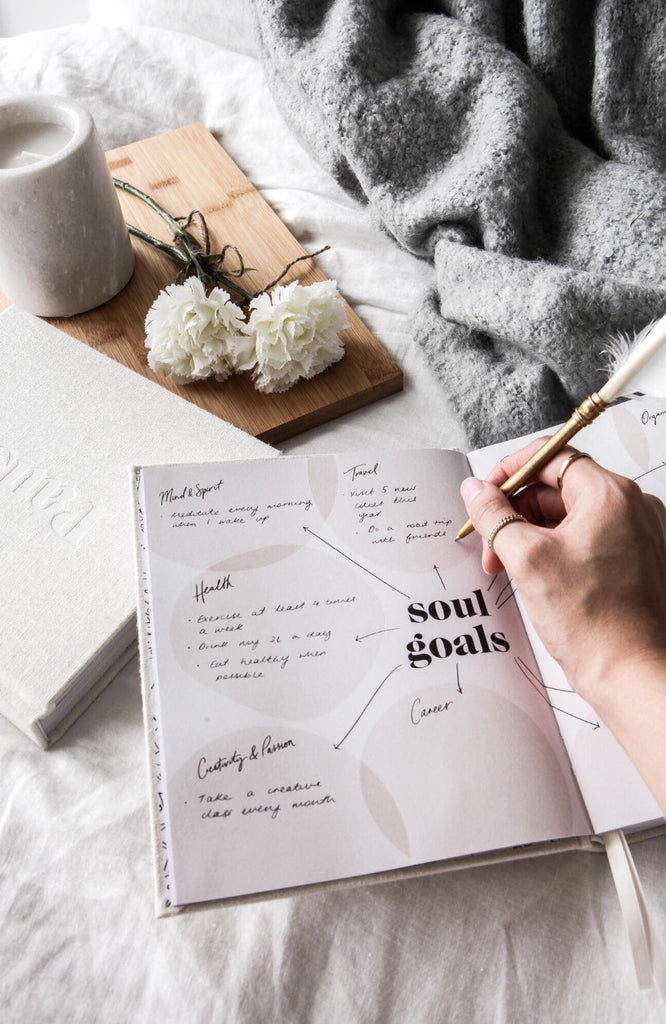 Mind & Spirit
• Meditate every morning
when I wake up
Travel
• Visit 5 new
cities this
year
• Do a road trip
with friends
Health
• Exercise at least 4 times
a week
• Drink my 2L a day
• Eat healthy when
possible
soul
goals
Creativity & Passion
• Take a creative
class every month
Career